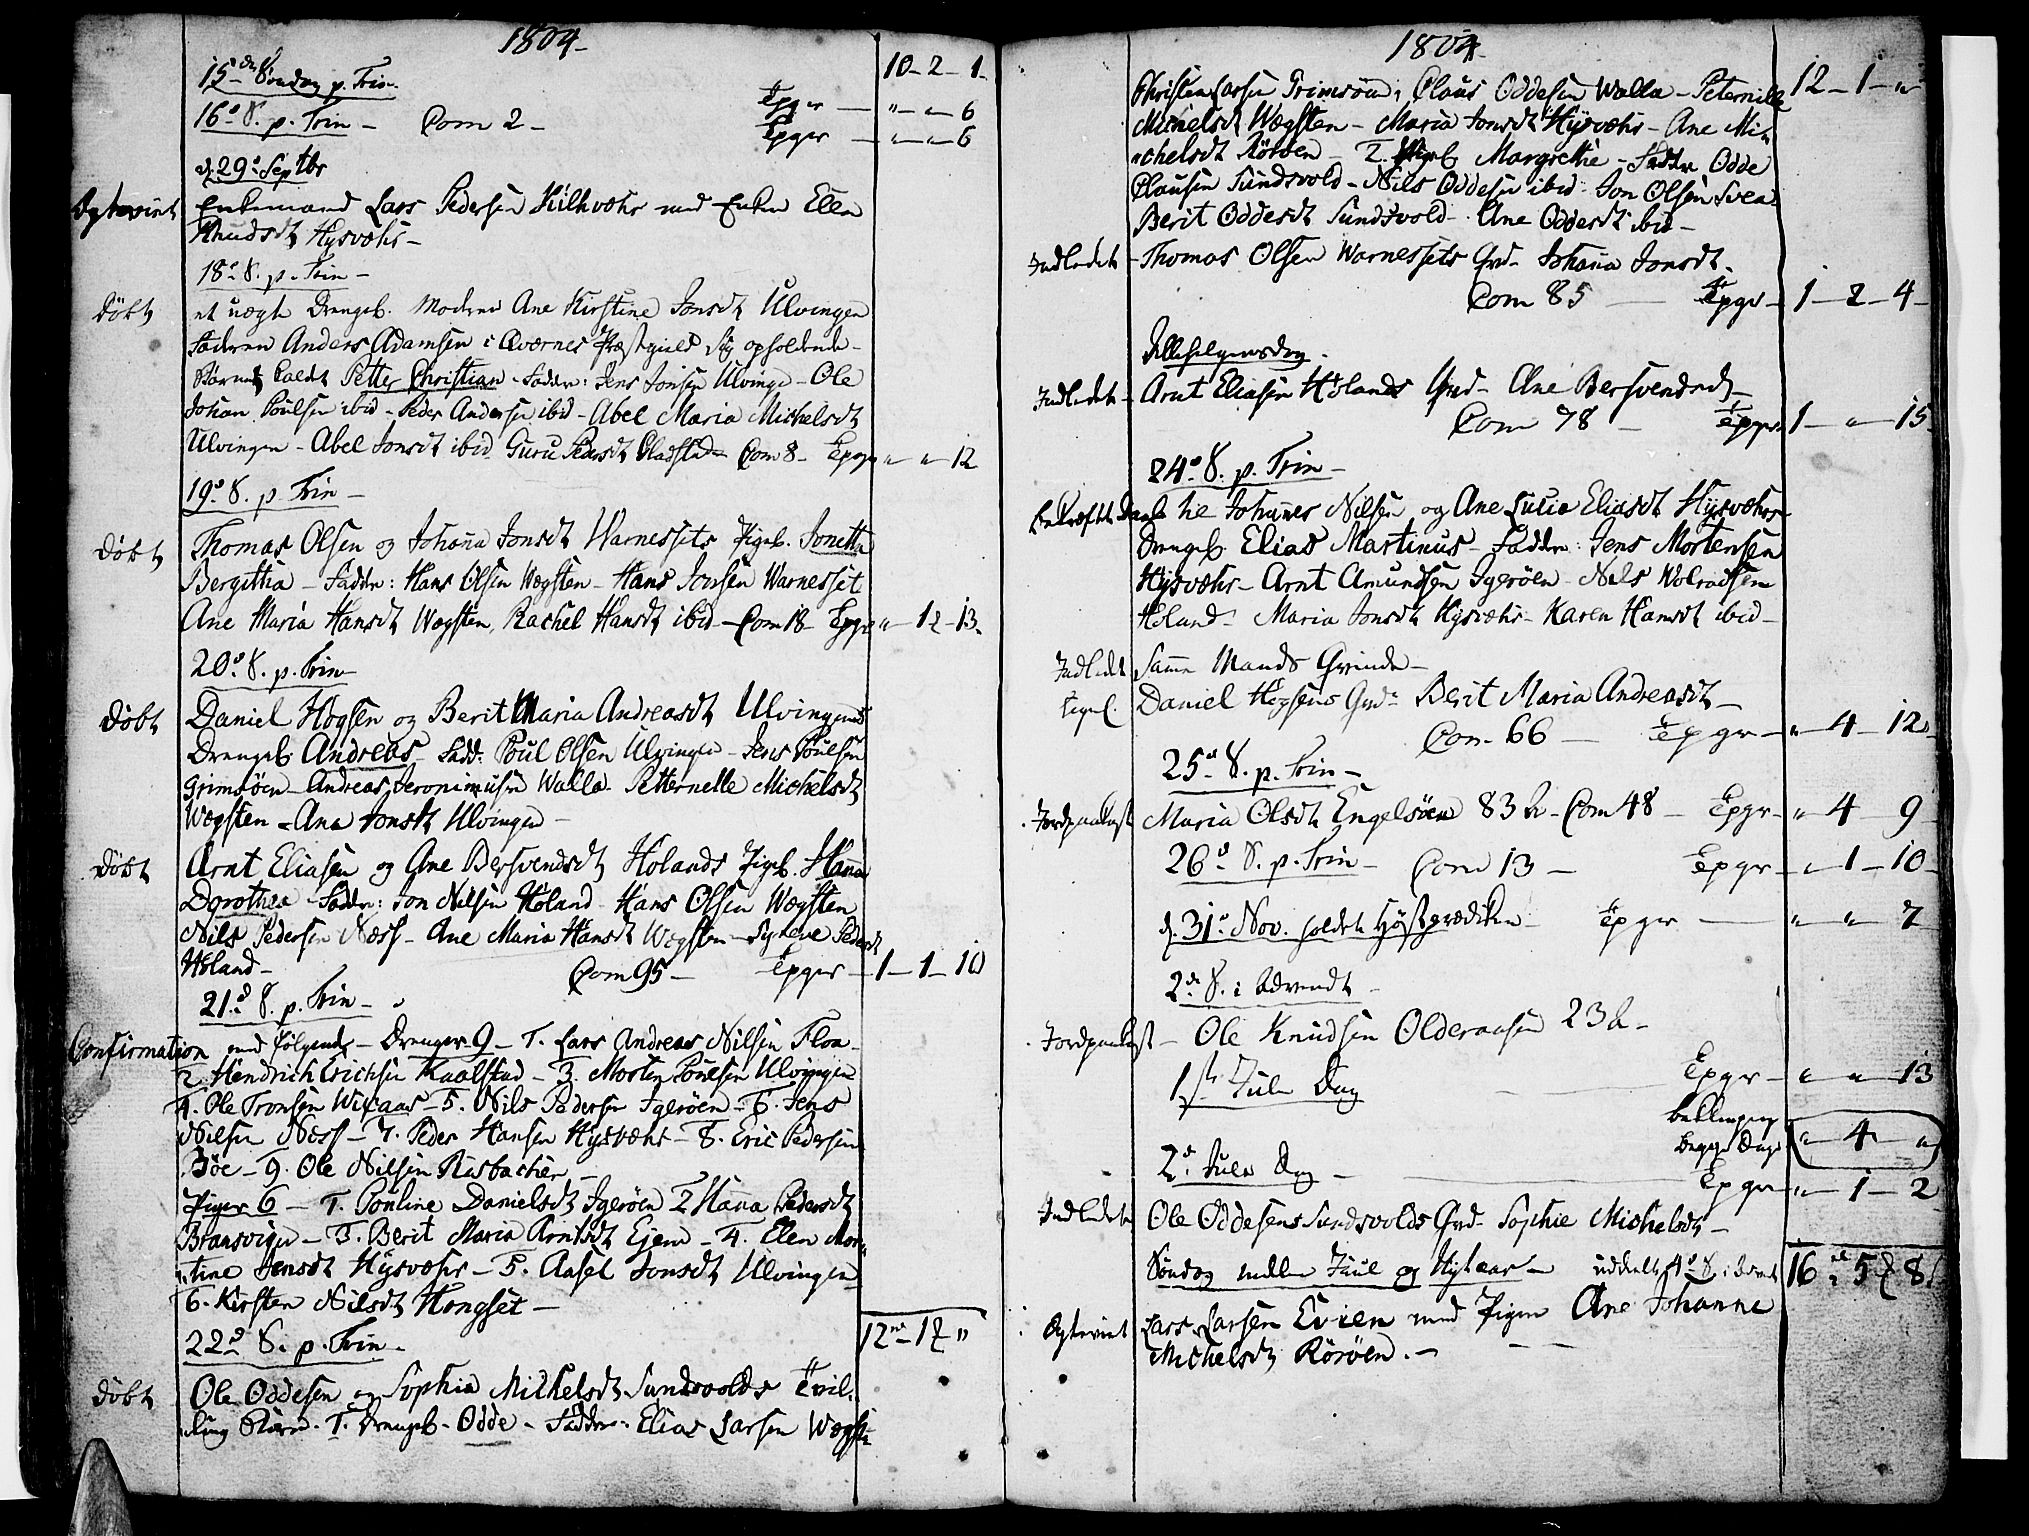 1804.
10-2-1.
15de Søndag p. Trin.
16d S. p. Trin - Com 2 - Epgr - " - " - 6
Epgr - " - " - 6
d. 29d Septbr
Enkemand Lars Pedersen Kilhvæhr med Enken Ellen
Knudsdt Hysvæhr -
18d S. p. Trin -
Døbt et uægte Drengeb. Moderen Ane Kirstine Jonsdt Ulvingen
Faderen Anders Adamsen i Qværnes Præstegield sig opholdende -
Barnet kaldt Petter Christian - Faddr: Jens Jonsen Ulvinge - Ole
Johan Poulsen ibid - Peder Andersen ibid - Abel Maria Michelsdt
Ulvingen - Abel Jonsdt ibid Guru Pedersdt Com 8 - Epgr " - " - 12
19d S. p. Trin -
Døbt Thomas Olsen og Johanna Jonsdt Warnessets Pigeb. Jonetta
Bergitha - Faddr: Hans Olsen Wægsten - Hans Jonsen Warnesset
Ane Maria Hansdt Wægsten, Rachel Hansdt ibid - Com 18 - Epgr " - 1 - 13.
20d S. p. Trin -
Døbt Daniel Hogsen og Berit Maria Andreasdt Ulvingens
Drengeb. Andreas - Fadd: Poul Olsen Ulvingen - Jens Poulsen
Grimsøen - Andreas Jeronimusen Walla - Petternelle Michelsdt
Wægsten - Ane Jonsdt Ulvingen -
Døbt Arnt Eliasen og Ane Bersvendsdt Holands Pigeb. Hanna
Dorothea - Faddr: Jon Nilsen Høland - Hans Olsen Wægsten
Nils Pedersen Næss - Ane Maria Hansdt Wægsten - Synneve Pedersdt
Høland - Com 95 - Epgr - 1 - 1 - 10
21d S. p. Trin -
Confirmation med følgende - Drenger 9 - 1. Lars Andreas Nilsen Floa -
2. Hendrich Erichsen Kaalstad - 3. Morten Poulsen Ulvingen
4. Ole Tronsen - 5. Nils Pedersen Igerøen - 6. Jens
Nilsen Næss - 7. Peder Hansen Hysvæhr - 8. Eric Pedersen
Bøe - 9. Ole Nilsen -
Piger 6 - 1. Pouline Danielsdt Igerøen 2 Hana Pedersdt
- 3. Berit Maria Arntsdt - 4. Ellen Mor-
tine Jensdt Hysvæhr - 5. Aasel Jonsdt Ulvingen
6. Kirsten Nilsdt Hongset -
22d S. p. Trin -
Døbt Ole Oddesen og Sophia Michelsdt Sundsvolds Tvil-
ling Børn - 1. Drengeb - Odde - Faddr: Elias Larsen Wægsten
1804.
Christen Larsen Grimsøen, Claus Oddesen Walla - Peternille 12 - 1 - "
Michelsdt Wægsten - Maria Jonsdt Hysvæhr - Ane Mi-
chelsdt Rørøen - 2. Pigeb Margrethe - Faddr Odde
Clausen Sundsvold - Nils Oddesen ibid - Jon Olsen
Berit Oddesdt Sundsvold - Ane Oddesdt ibid -
Indledet - Thomas Olsen Warnessets Qvd - Johanna Jonsdt.
Com 85 - Epgr - 1 - 2 - 4 -
Allehelgensdag.
Indledet - Arnt Eliasen Hølands Qvd - Ane Bersvendsdt -
Com 78 - Epgr 1 - " - 15
24d S. p. Trin -
Johannes Nilsen og Ane Lucia Eliasdt Hysvæhrs
Drengeb. Elias Martinus - Faddr: Jens Mortensen
Hysvæhr - Arnt Amundsen Igerøen - Nils Wolradsen
Høland - Maria Jonsdt Hysvæhr - Karen Hansdt ibid -
Indledt Samme Mands Qvinde -
Daniel Hogsens Qvd Berit Maria Andreasdt -
Com - 66 - Epgr - " - 4 - 12
25d S. p. Trin -
Jordpaakast Maria Olsdt Engelsøen 83 - Com 48 - Epgr - " 4 - 9
26d S. p. Trin - Com 13 - Epgr - " - 1 - 10
d. 31d Nov. holdet Høstprædiken - Epgr - " " 7
2d S. i Advendt -
Jordpaakast - Ole Knudsen Olderaasen 23 -
1ste Jule Dag Epgr - " " 13
begge Dage " - 4 - "
2d Jule Dag - Epgr - " - 1 - 2
Indledet Ole Oddesens Sundsvolds Qvd - Sophie Michelsdt -
Søndag mellem Juul og Nytaar - 16 " 5 8
Lars Larsen med Pigen Ane Johanne
Michelsdt Rørøen. -